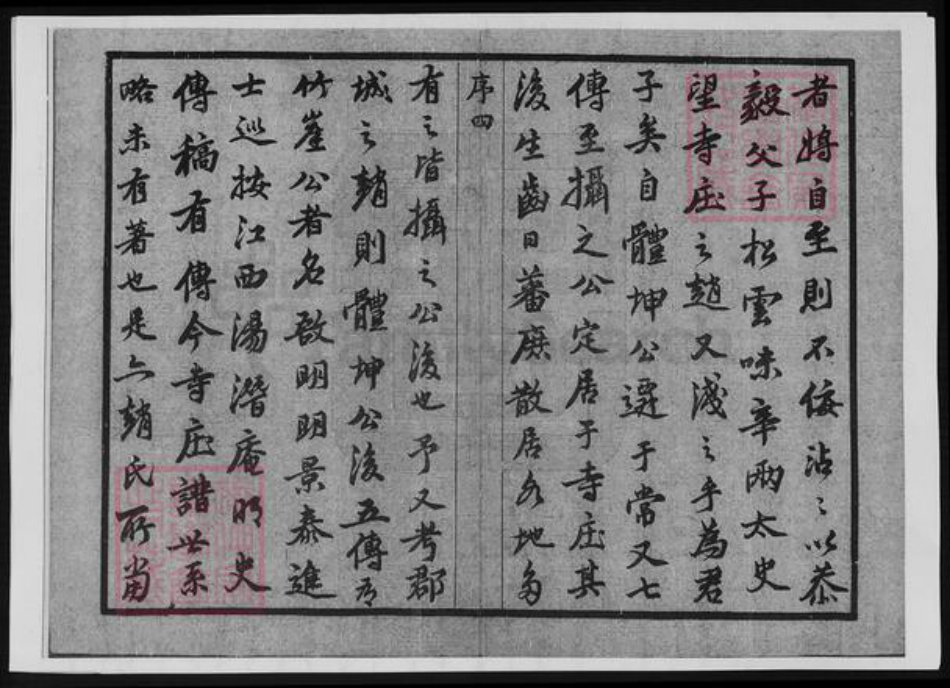 者將自至則不佞沾沾以恭
毅父子松雲味辛兩太史
望寺庄之趙又淺之乎為君
子矣自體坤公遷于常又七
傳至攝之公定居于寺庄其
後生齒日蕃庶散居各地多
序四
有之皆攝之公後也予又考郡
城之趙則體坤公後五傳有
竹崖公者名啟明明景泰進
士巡按江西湯潛庵明史
傳稿有傳今寺庄譜世系
略未有著也是亦趙氏所當